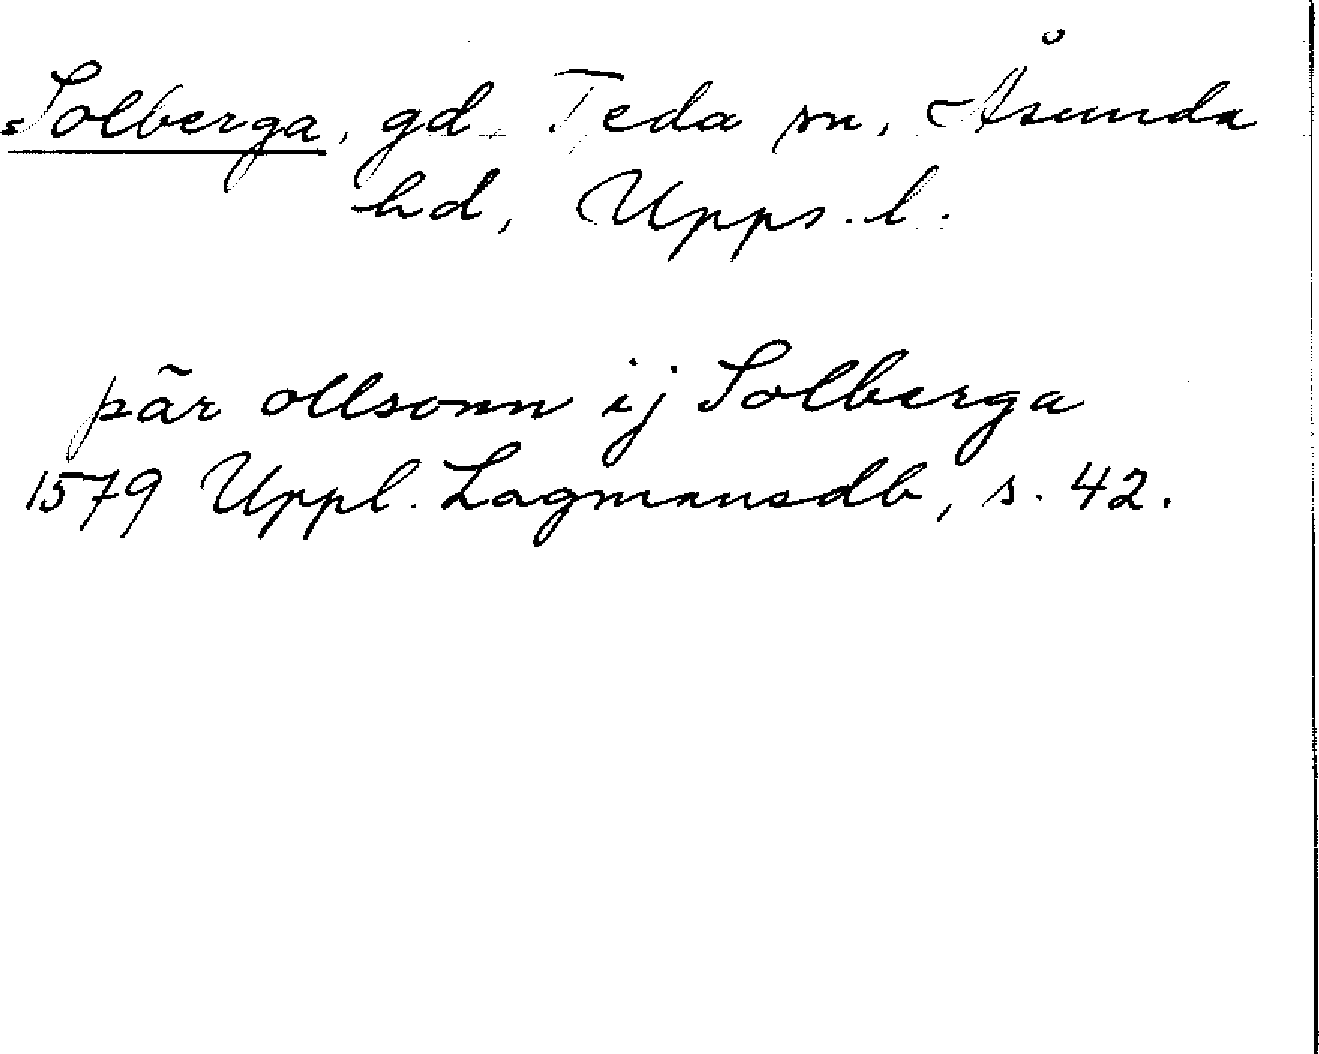 Solberga, gd, Teda sn, Åsunda
hd, Upps. l.
pär ollsonn ij Solberga
1579 Uppl. Lagmansdb, s. 42.